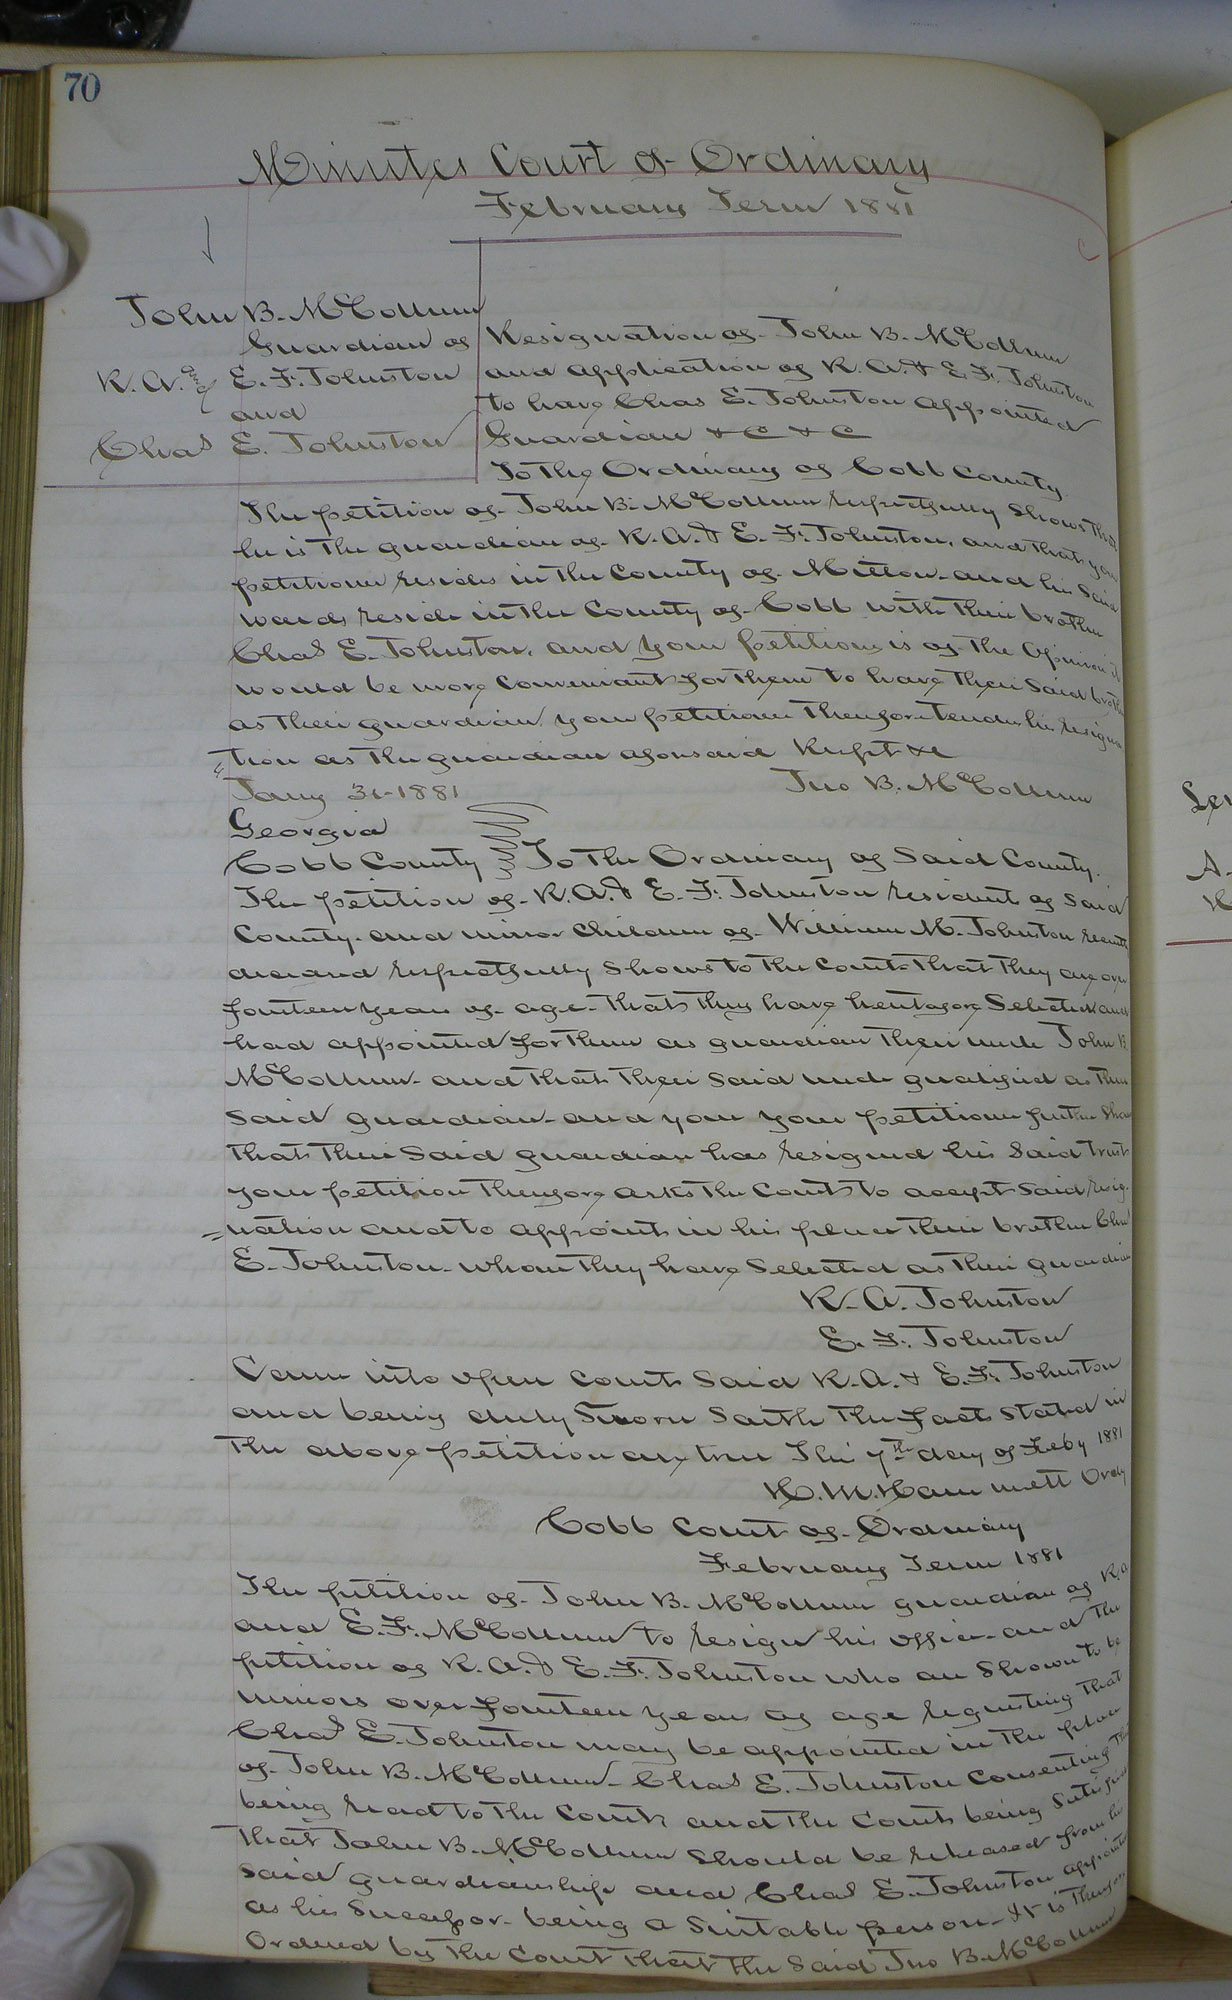 70
Minutes Court of Ordinary
February Term 1881
John B. McCollum
Guardian of
R. A. & E. F. Johnston
and
Chas E. Johnston
Resignation of John B. McCollum
and application of R. A. & E. F. Johnston
to have Chas E. Johnston appointed
Guardian &C &C
To the Ordinary of Cobb County
The petition of John B. McCollum respectfully shows that
he is the guardian of R. A. & E. F. Johnston, and that your
petitioner resides in the County of Milton and his said
wards reside in the County of Cobb with their brother
Chas E. Johnston, and your petitioner is of the opinion it
would be more convenient for them to have their said brother
as their guardian your petitioner therefore tenders his resigna
"tion as the guardian aforesaid Respt &c
Jany 31-1881 Jno B. McCollum
Georgia
Cobb County To the Ordinary of said County.
The petition of R. A. & E. F. Johnston residents of said
County and minor children of William M. Johnston recently
deceased respectfully shows to the Court that they are over
fourteen years of age that they have heretofore selected and
had appointed for them as guardian their uncle John B
McCollum and that their said uncle qualified as their
said guardian and your your petitioner further show
that their said guardian has resigned his said trust
your petition therefore asks the Court to accept said resig-
=nation and to appoint in his place their brother Chas
E. Johnston whom they have selected as their guardian
R. A. Johnston
E. F. Johnston
Came into open Court said R. A. & E. F. Johnston
and being duly sworn saith the facts stated in
the above petition are true This 7th day of Feby 1881
H. M. Hammett Ordy
Cobb Court of Ordinary
February Term 1881
The petition of John B. McCollum guardian of R. A
and E. F. McCollum to resign his office and the
petition of R. A. & E. F. Johnston who are shown to be
minors over fourteen years of age requesting that
Chas E. Johnston may be appointed in the place
of John B. McCollum Chas E. Johnston consenting
being read to the Court and the Court being satisfied
that John B. McCollum should be released from his
said guardianship and Chas E. Johnston appointed
as his successor being a suitable person It is therefore
Ordered by the Court that the said Jno B. McCollum
A.